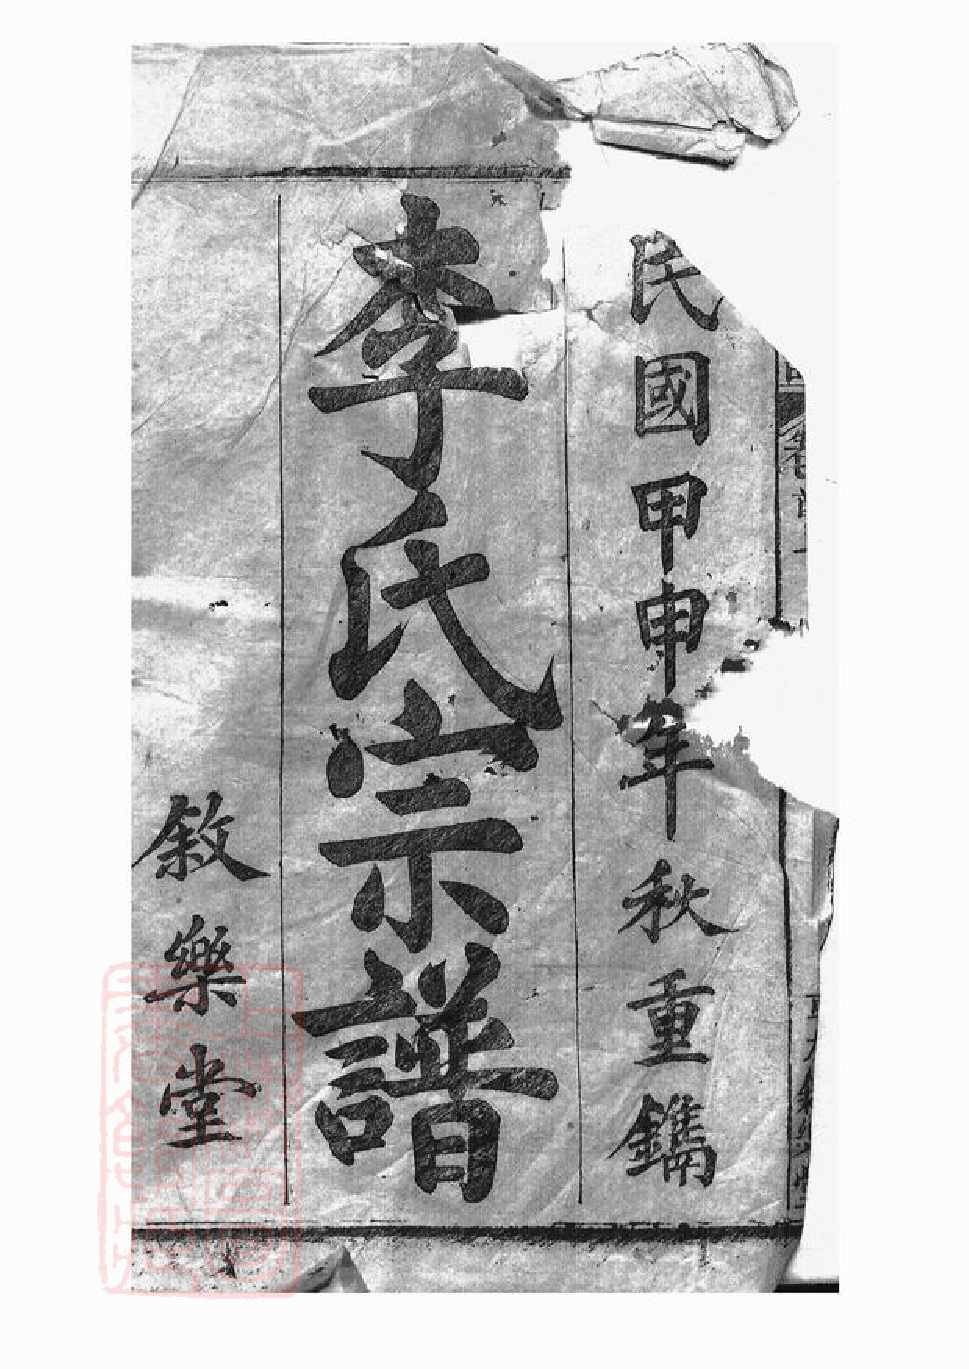 民國甲申年秋重鐫
李氏宗譜
敘樂堂